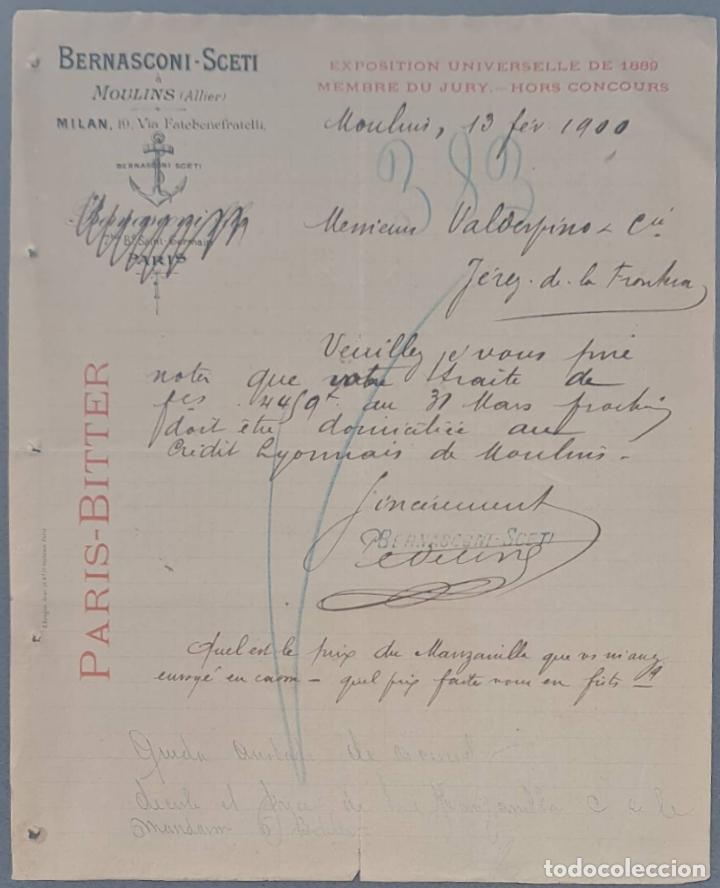 BERNASCONI-SCETI
à
MOULINS (Allier)
MILAN, 19, Via Fatebenefratelli,
BERNASCONI SCETI
Bd Saint-Germain
PARIS
EXPOSITION UNIVERSELLE DE 1889
MEMBRE DU JURY.-HORS CONCOURS
Moulins, 13 fév. 1900
383
Messieurs Valdespino & Cie
Jérez-de-la Frontera
Veuillez je vous prie
noter que votre traite de
fcs au 31 Mars prochain
doit être domiciliée au
Crédit Lyonnais de Moulins.
Sincèrement
BERNASCONI-SCETI
PARIS-BITTER
Quel est le prix du Manzanilla que vs m'avez
envoyé en - quel prix faite vous en fûts
Queda de
el de la Manzanilla
todocoleccion